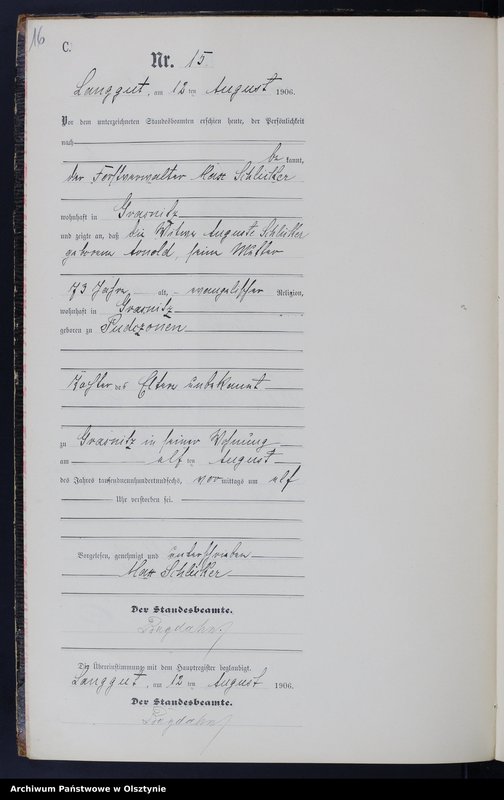 16
C.
Nr. 15
Langgut, am 12 ten August 1906.
Vor dem unterzeichneten Standesbeamten erschien heute, der Persönlichkeit
nach
be kannt,
der Forstverwalter Max Schlüter
wohnhaft in Grasnitz
und zeigte an, daß die Witwe Auguste Schlüter
geborene Arnold, seine Mutter
73 Jahre alt, evangelischer Religion,
wohnhaft in Grasnitz
geboren zu
Tochter des Eltern unbekannt
zu Grasnitz in seiner Wohnung
am elf ten August
des Jahres tausendneunhundertundsechs, vor mittags um elf
Uhr verstorben sei.
Vorgelesen, genehmigt und unterschrieben
Max Schlüter
Der Standesbeamte.
Bogdahn
Die Übereinstimmung mit dem Hauptregister beglaubigt.
Langgut, am 12 ten August 1906.
Der Standesbeamte.
Bogdahn
Archiwum Państwowe w Olsztynie